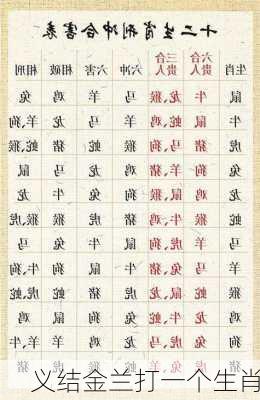 十二生肖刑冲合害表
生肖 六合贵人 三合贵人 六冲 六害 相破 相刑
鼠 牛 龙、猴 马 羊 鸡 兔
牛 鼠 蛇、鸡 羊 马 龙 羊、狗
虎 猪 马、狗 猴 蛇 猪 蛇、猴
兔 狗 羊、猪 鸡 龙 马 鼠
龙 鸡 鼠、猴 狗 兔 牛 龙
蛇 猴 牛、鸡 猪 虎 猴 猴、虎
马 羊 虎、狗 鼠 牛 兔 马
羊 马 兔、猪 牛 鼠 狗 牛、狗
猴 蛇 鼠、龙 虎 猪 蛇 虎、蛇
鸡 龙 牛、蛇 兔 狗 鼠 鸡
狗 兔 虎、马 龙 鸡 羊 牛、羊
猪 虎 兔、羊 蛇 猴 虎 猪
义结金兰打一个生肖